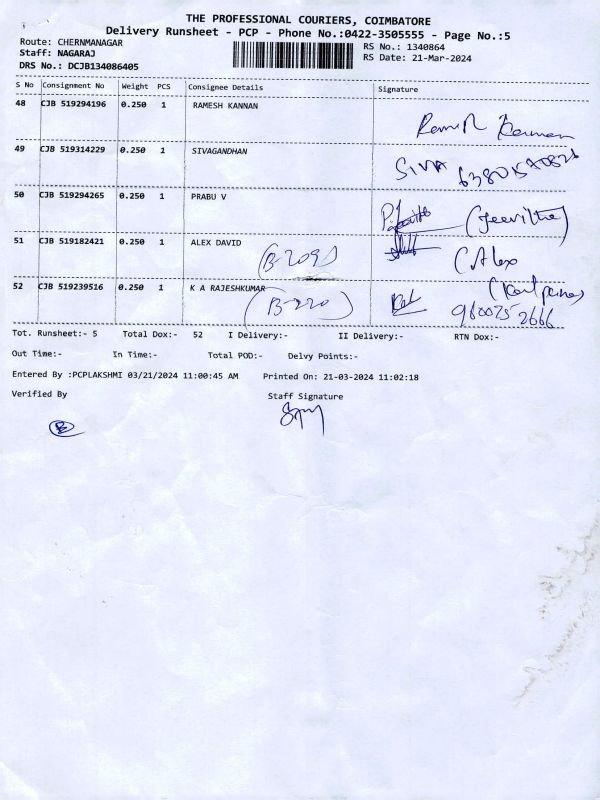 THE PROFESSIONAL COURIERS, COIMBATORE
Delivery Runsheet - PCP - Phone No.:0422-3505555 - Page No.:5
Route: CHERNMANAGAR RS No.: 1340864
Staff: NAGARAJ RS Date: 21-Mar-2024
DRS No.: DCJB134086405
S No Consignment No Weight PCS Consignee Details Signature
48 CJB 519294196 0.250 1 RAMESH KANNAN
Ramesh Kannan
49 CJB 519314229 0.250 1 SIVAGANDHAN
SIVA
50 CJB 519294265 0.250 1 PRABU V
(Jeevitha)
51 CJB 519182421 0.250 1 ALEX DAVID
(B-209) (Alex
52 CJB 519239516 0.250 1 K A RAJESHKUMAR
(B-220) 960025 2666
Tot. Runsheet:- 5 Total Dox:- 52 I Delivery:- II Delivery:- RTN Dox:-
Out Time:- In Time:- Total POD:- Delvy Points:-
Entered By :PCPLAKSHMI 03/21/2024 11:00:45 AM Printed On: 21-03-2024 11:02:18
Verified By Staff Signature